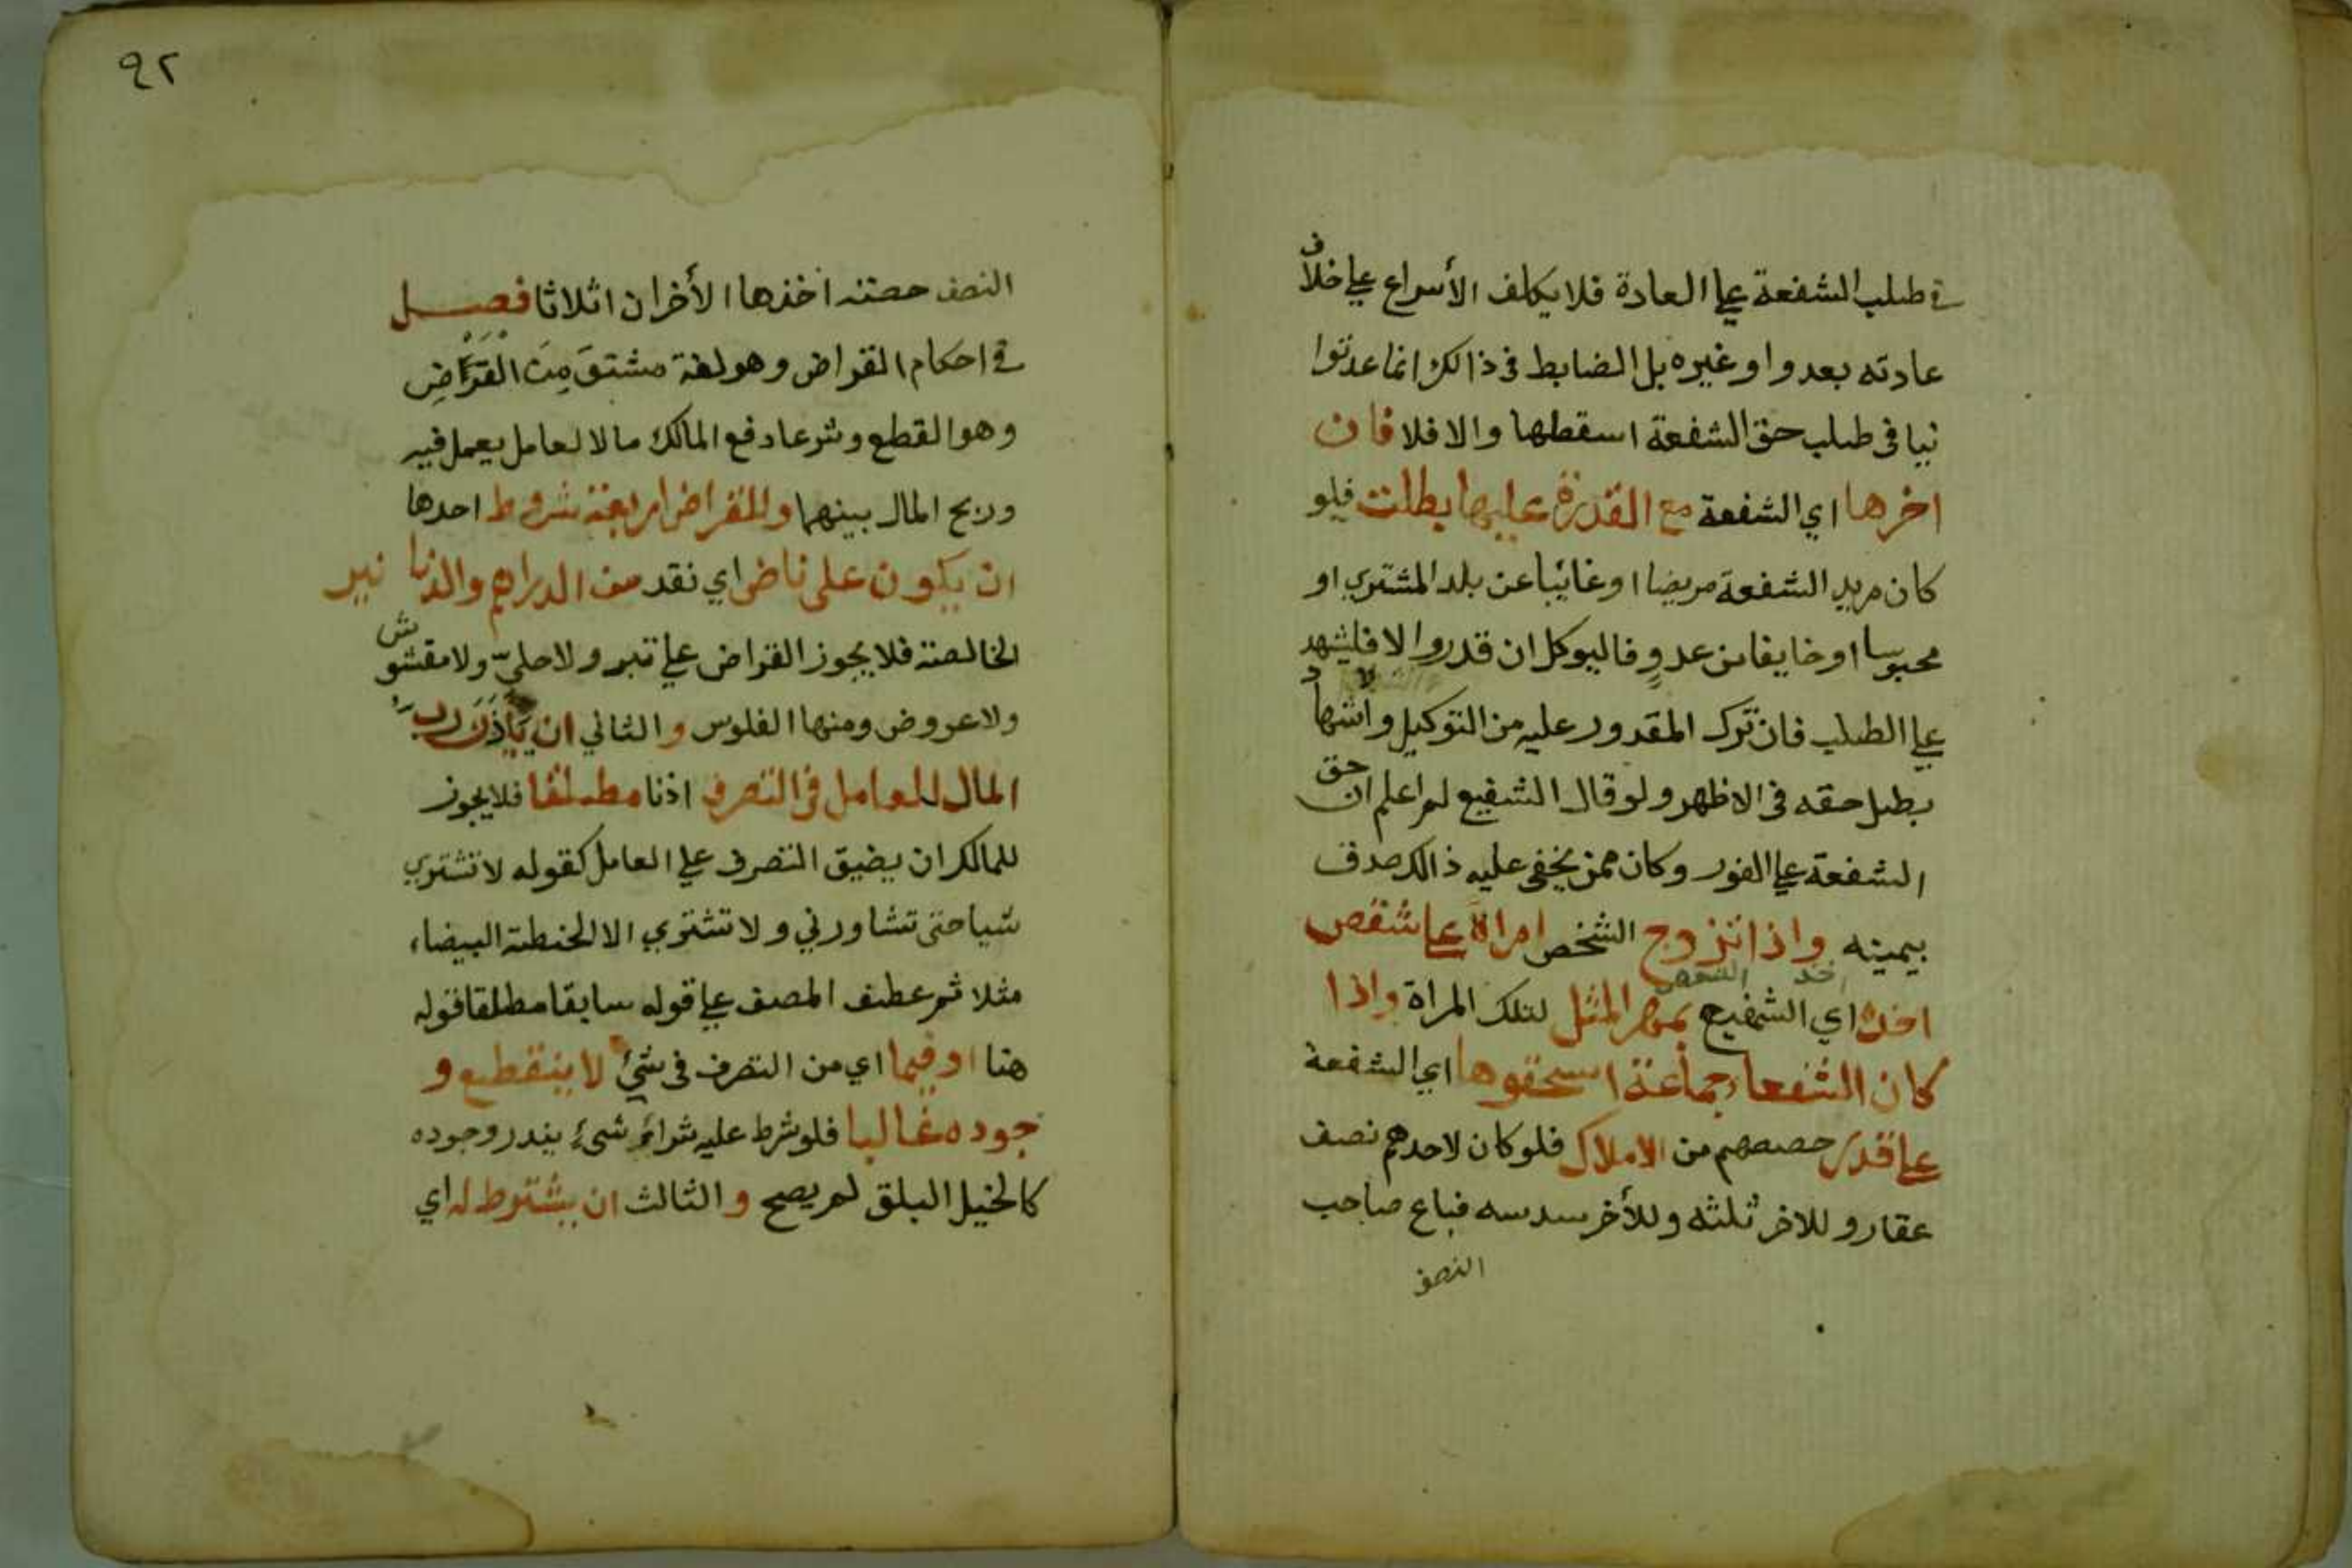 في طلب الشفعة علي العادة فلا يكلف الأسراع علي خلاف
عادته بعدوا وغيره بل الضابط في ذالك انما عد توا
نيا في طلب حق الشفعة اسقطها والا فلا فان
اخرها اي الشفعة مع القدرة عليها بطلت فلو
كان مريد الشفعة مريضا اوغائبا عن بلد المشتري او
محبوسا اوخايفا من عدو فاليوكل ان قدر والا فليشهد
علي الطلب فان ترك المقدور عليه من التوكيل والاشهاد
بطل حقه في الاظهر ولو قال الشفيع لم اعلم ان حق
الشفعة علي الفور وكان ممن يخفي عليه ذالك صدق
بيمينه واذا تزوج الشخص امراة علي شقص
اخذه اي الشفيع بمهر المثل لتلك المراة واذا
كان الشفعا جماعة استحقوها اي الشفعة
علي قدر حصصهم من الاملاك فلو كان لاحدهم نصف
عقار وللاخر ثلثه وللأخر سدسه فباع صاحب
النصف
٩٢
النصف حصته اخذها الأخران اثلاثا فصل
في احكام القراض وهو لغة مشتق من القرض
وهو القطع وشرعا دفع المالك مالا لعامل يعمل فيه
وربح المال بينهما وللقراض اربعة شروط احدها
ان يكون علي ناض اي نقد من الدراهم والدنا نير
الخالصة فلا يجوز القراض علي تبر ولا حلي ولا مغشوش
ولا عروض ومنها الفلوس والثاني ان ياذن رب
المال للعامل في التصرف اذنا مطلقا فلا يجوز
للمالك ان يضيق التصرف علي العامل كقوله لا تشتري
شيا حتى تشاورني ولا تشتري الا الحنطة البيضاء
مثلا ثم عطف المصنف علي قوله سابقا مطلقا قوله
هنا او فيما اي من التصرف في شيئ لا ينقطع و
جوده غالبا فلو شرط عليه شرائ شيء يندر وجوده
كالخيل البلق لم يصح والثالث ان يشترط له اي